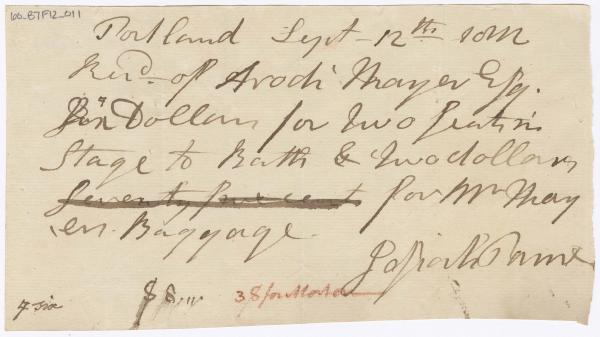 60_B7F12_011
Portland Sept - 12th
Recd. of Arodi Thayer Esq.
Dollars for two Seats in
Stage to Bath & Two dollars
Seventy five cent for Mr Thay
ers. Baggage.
Josiah Paine
$8
38 for